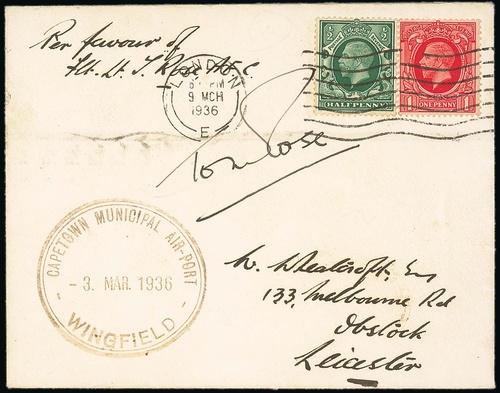 Per favour of
Flt. Lt. T. Rose AFC
LONDON
PM
9 MCH
1936
E
HALFPENNY
ONE PENNY
Tom Rose
CAPETOWN MUNICIPAL AIR-PORT
- 3. MAR. 1936
- WINGFIELD -
W. Wheatcroft, Esq
133, Melbourne Rd
Ibstock
Leicester